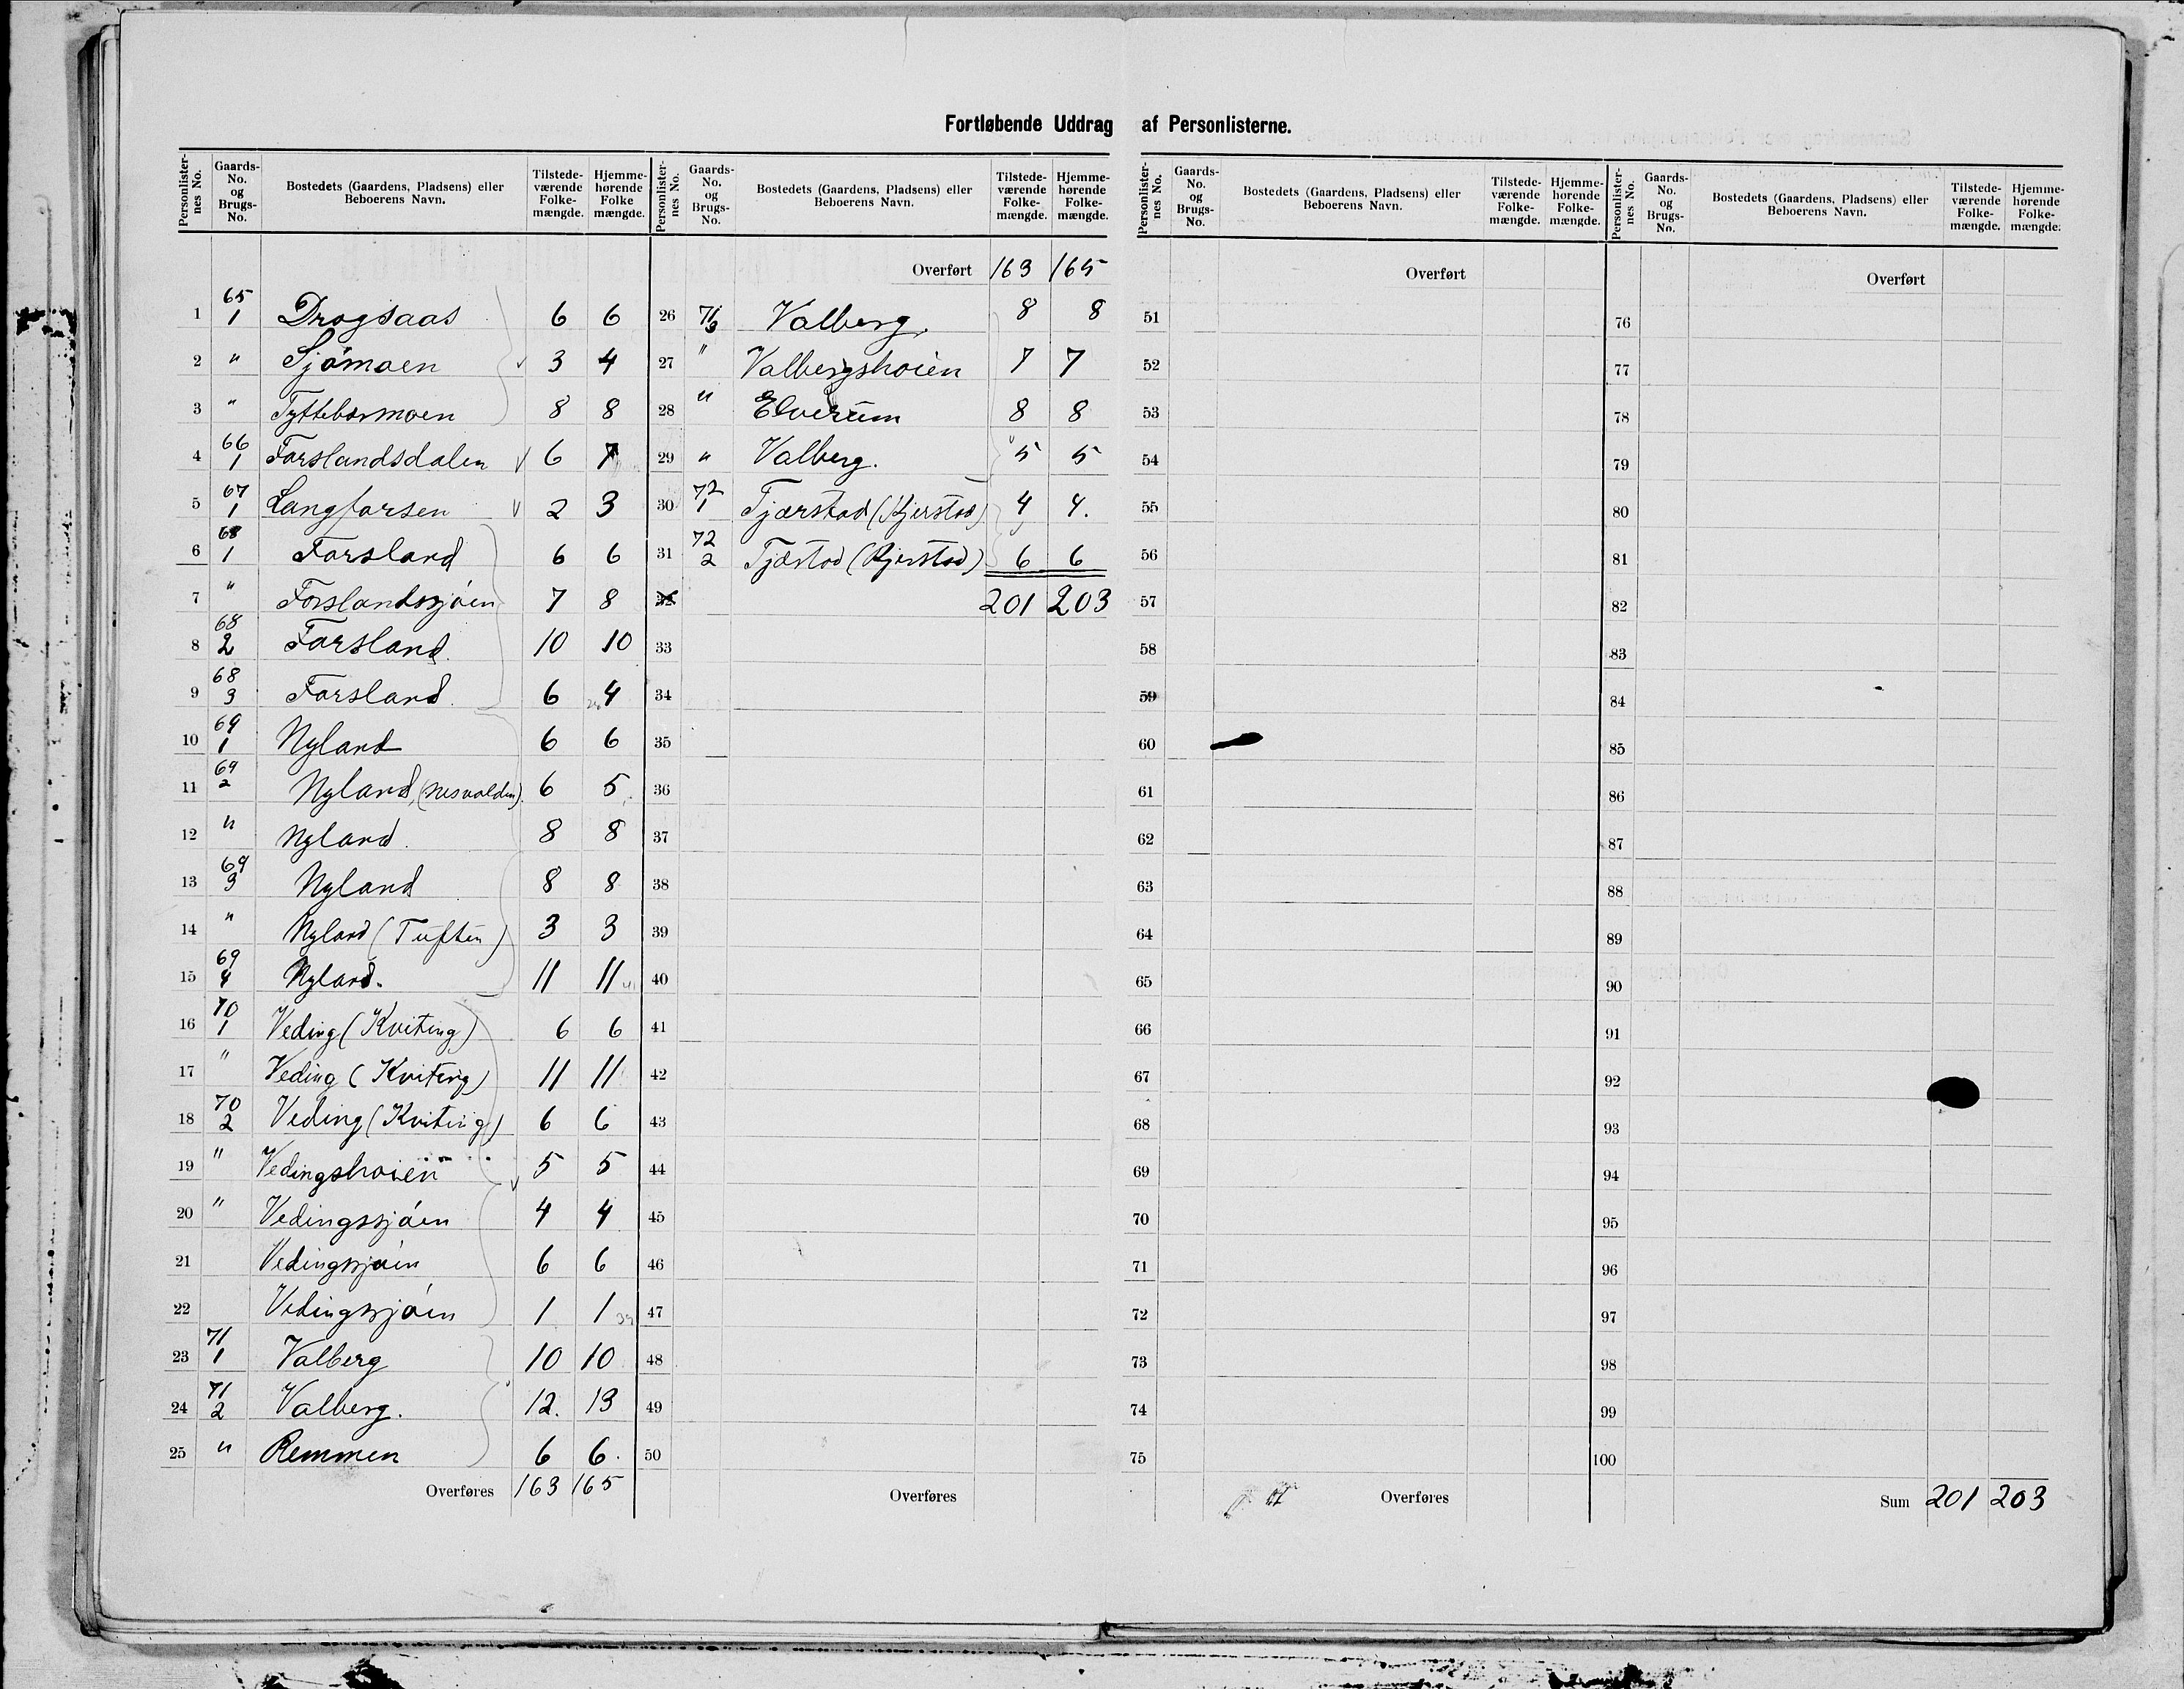 Fortløbende Uddrag af Personlisterne.
Personlister-nes No. Gaards-No. og Brugs-No. Bostedets (Gaardens, Pladsens) eller Beboerens Navn. Tilstede-værende Folke-mængde. Hjemme-hørende Folke mængde.
1 65/1 Drogsaas 6 6
2 " Sjömoen 3 4
3 " Tyttebærmoen 8 8
4 66/1 Forslandsdalen 6 7
5 67/1 Langforsen 2 3
6 68/1 Forsland 6 6
7 " Forslandssjöen 7 8
8 68/2 Forsland. 10 10
9 68/3 Forsland. 6 4
10 69/1 Nyland 6 6
11 69/2 Nyland, (Nesvolden). 6 5
12 " Nyland. 8 8
13 69/3 Nyland 8 8
14 " Nyland (Tuften) 3 3
15 69/4 Nyland. 11 11
16 70/1 Veding (Kviting) 6 6
17 " Veding (Kviting) 11 11
18 70/2 Veding (Kviting) 6 6
19 " Vedingshoien 5 5
20 " Vedingssjöen 4 4
21 Vedingssjöen 6 6
22 Vedingssjöen 1 1
23 71/1 Valberg 10 10
24 71/2 Valberg. 12. 13
25 " Remmen 6 6.
Overføres 163 165
Personlister-nes No. Gaards-No. og Brugs-No. Bostedets (Gaardens, Pladsens) eller Beboerens Navn. Tilstede-værende Folke-mængde. Hjemme-hørende Folke-mængde.
Overført 163 165
26 71/3 Valberg. 8 8
27 " Valbergshoien 7 7
28 " Elverum 8 8
29 " Valberg. 5 5
30 72/1 Tjærstad (Kjerstad) 4 4.
31 72/2 Tjæstad (Kjerstad) 6 6
32 201 203
33
34
35
36
37
38
39
40
41
42
43
44
45
46
47
48
49
50
Overføres
Personlister-nes No. Gaards-No. og Brugs-No. Bostedets (Gaardens, Pladsens) eller Beboerens Navn. Tilstede-værende Folke-mængde. Hjemme-hørende Folke-mængde.
Overført
51
52
53
54
55
56
57
58
59
60
61
62
63
64
65
66
67
68
69
70
71
72
73
74
75
Overføres
Personlister-nes No. Gaards-No. og Brugs-No. Bostedets (Gaardens, Pladsens) eller Beboerens Navn. Tilstede-værende Folke-mængde. Hjemme-hørende Folke-mængde.
Overført
76
77
78
79
80
81
82
83
84
85
86
87
88
89
90
91
92
93
94
95
96
97
98
99
100
Sum 201 203